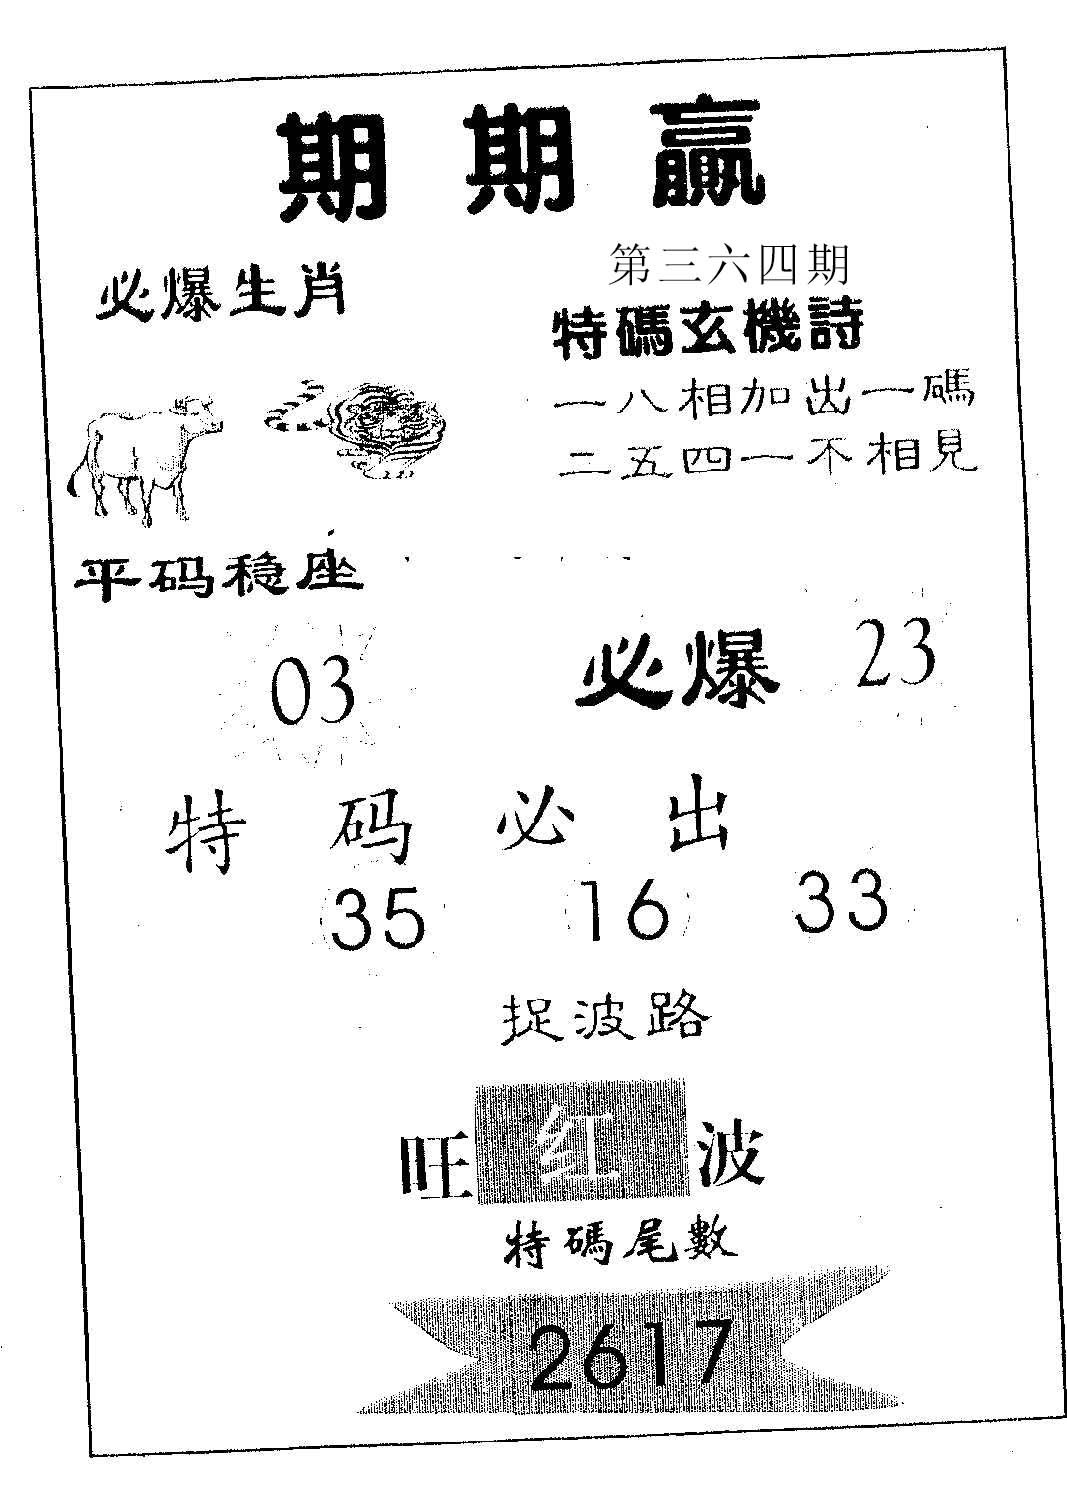 期期贏
第三六四期
必爆生肖
特碼玄機詩
一八相加出一碼
二五四一不相見
平码稳座
03
必爆
23
特码必出
35 16 33
捉波路
旺红波
特碼尾數
2617